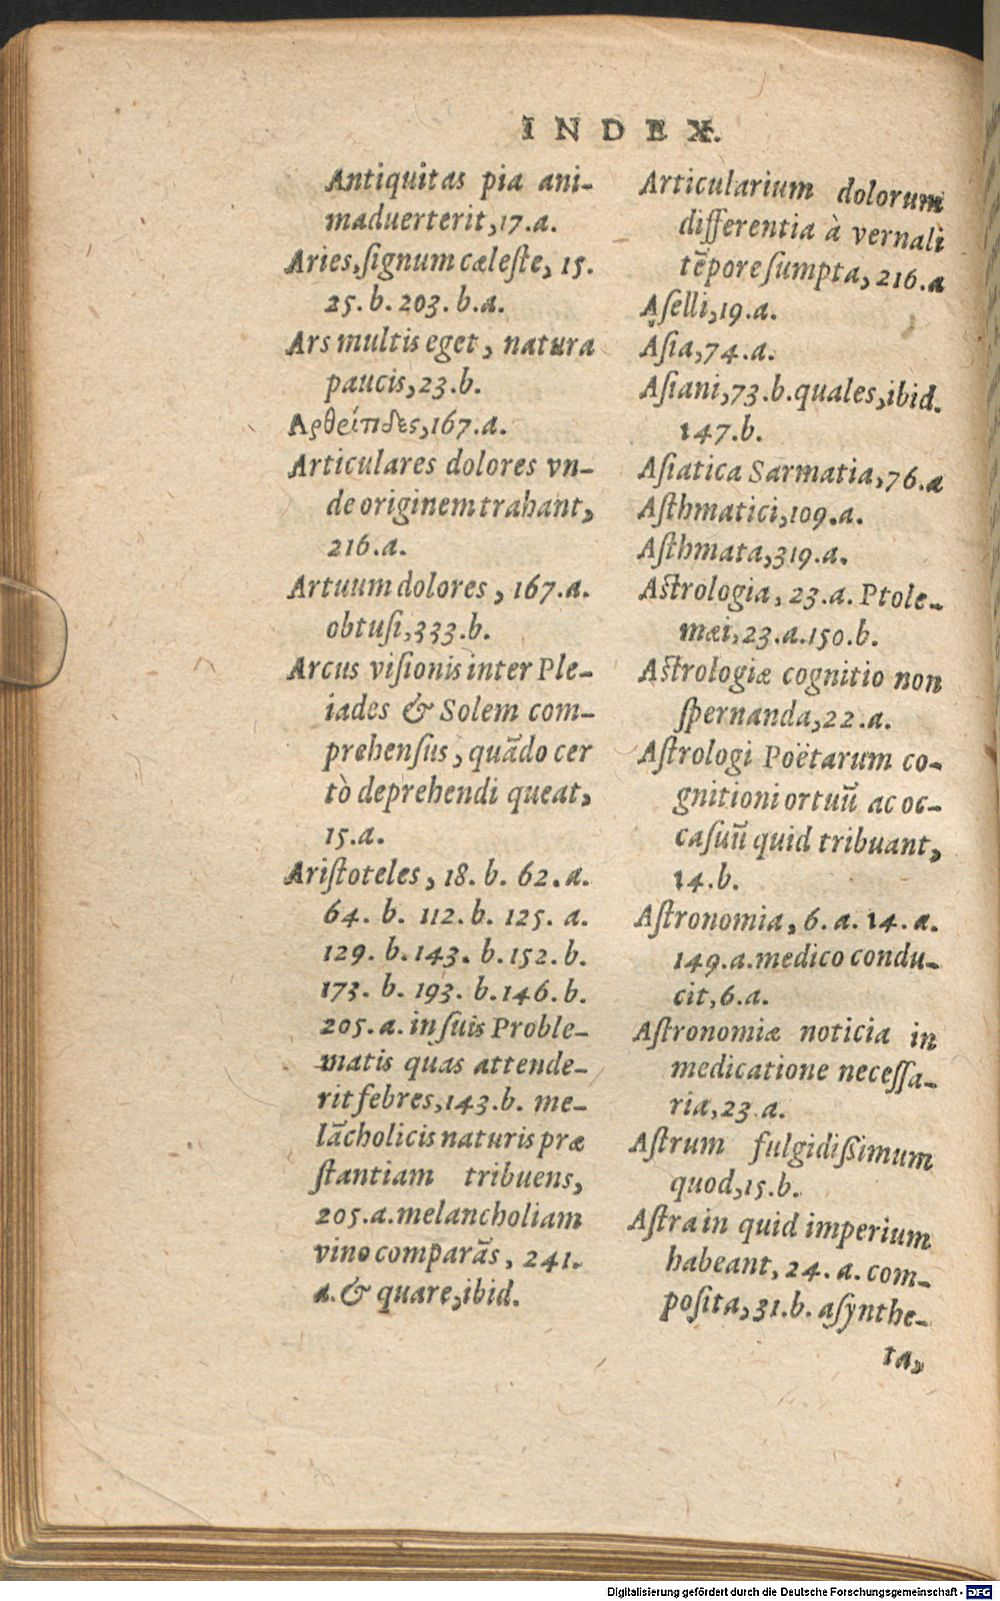 INDEX.
Antiquitas pia ani-
maduerterit,17.a.
Aries,ſignum cæleſte, 15.
25. b. 203. b.a.
Ars multis eget, natura
paucis,23.b.
Αρθρίτιδες,167.a.
Articulares dolores vn-
de originem trahant,
216.a.
Artuum dolores, 167.a.
obtuſi,333.b.
Arcus viſionis inter Ple-
iades & Solem com-
prehenſus, quãdo cer
tò deprehendi queat,
15.a.
Ariſtoteles, 18. b. 62. a.
64. b. 112. b. 125. a.
129. b. 143. b. 152. b.
173. b. 193. b. 146. b.
205. a. in ſuis Proble-
matis quas attende-
rit febres,143.b. me-
lãcholicis naturis præ
ſtantiam tribuens,
205.a.melancholiam
vino comparãs, 241.
a. & quare,ibid.
Articularium dolorum
differentia à vernali
tẽpore ſumpta, 216.a
Aſelli,19.a.
Aſia,74.a.
Aſiani,73.b.quales,ibid.
147.b.
Aſiatica Sarmatia,76.a
Aſthmatici,109.a.
Aſthmata,319.a.
Aſtrologia, 23.a. Ptole-
mæi,23.a.150.b.
Aſtrologiæ cognitio non
ſpernanda,22.a.
Aſtrologi Poëtarum co-
gnitioni ortuũ ac oc-
caſuũ quid tribuant,
14.b.
Aſtronomia, 6. a. 14. a.
149.a.medico condu-
cit,6.a.
Aſtronomiæ noticia in
medicatione neceſſa-
ria,23 a.
Aſtrum fulgidiſsimum
quod,15.b.
Aſtra in quid imperium
habeant, 24. a. com-
poſita,31.b. aſynthe-
ta,
Digitalisierung gefördert durch die Deutsche Forschungsgemeinschaft - DFG